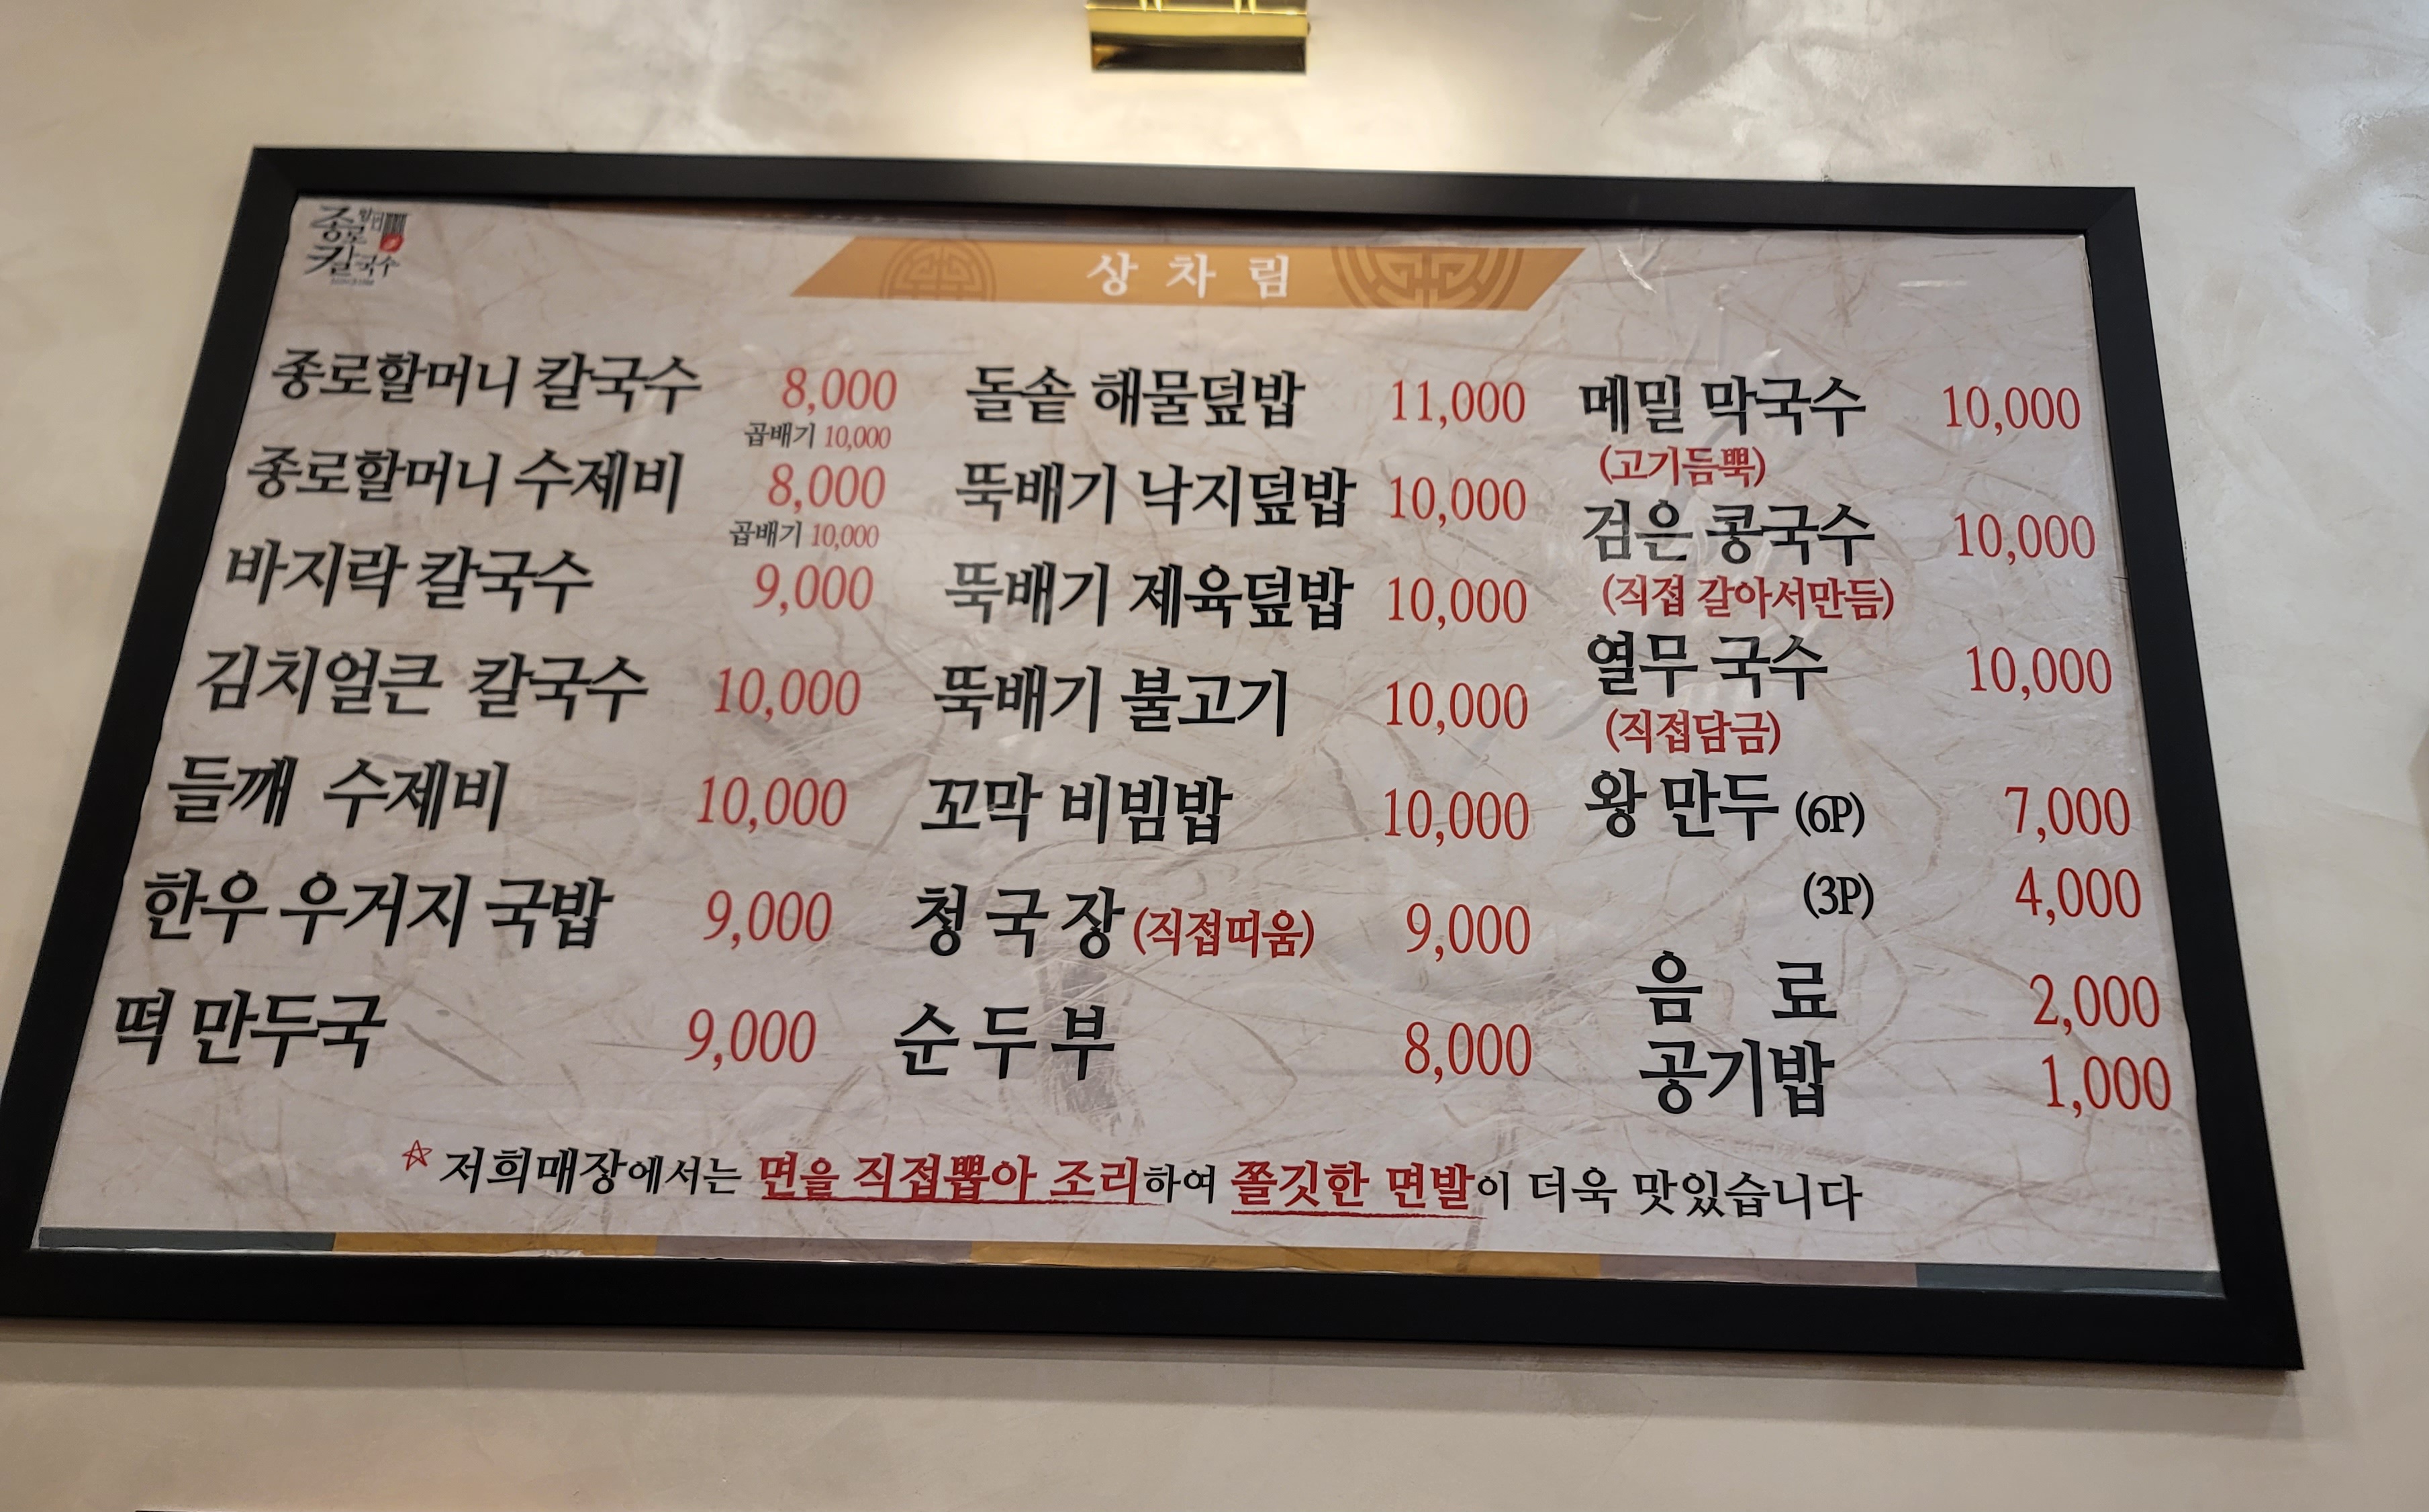 종로
할머니
칼국수
상차림
종로할머니 칼국수 8,000
곱배기 10,000
종로할머니 수제비 8,000
곱배기 10,000
바지락 칼국수 9,000
김치얼큰 칼국수 10,000
들깨 수제비 10,000
한우 우거지 국밥 9,000
떡 만두국 9,000
돌솥 해물덮밥 11,000
뚝배기 낙지덮밥 10,000
뚝배기 제육덮밥 10,000
뚝배기 불고기 10,000
꼬막 비빔밥 10,000
청국장 (직접띠움) 9,000
순두부 8,000
메밀 막국수 10,000
(고기듬뿍)
검은 콩국수 10,000
(직접 갈아서만듬)
열무 국수 10,000
(직접담금)
왕 만두 (6P) 7,000
(3P) 4,000
음료 2,000
공기밥 1,000
☆ 저희매장에서는 면을 직접뽑아 조리하여 쫄깃한 면발이 더욱 맛있습니다